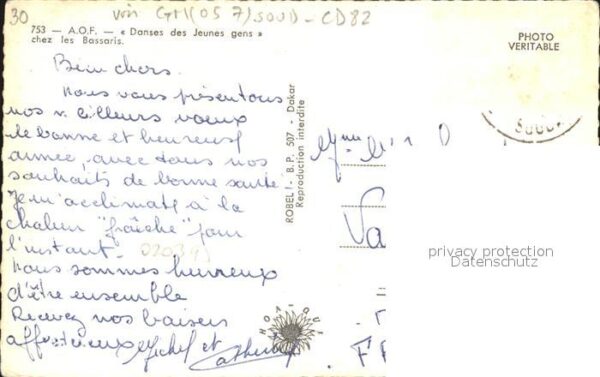 30
753 — A.O.F. — « Danses des Jeunes gens »
chez les Bassaris.
PHOTO
VERITABLE
Bien chers
Nous vous présentons
nos meilleurs vœux
de bonne et heureuse
année, avec tous nos
souhaits de bonne santé
Je m'acclimate à la
chaleur "fraîche" pour
l'instant.
Nous sommes heureux
d'être ensemble
Recevez nos baisers
affectueux Michel et Catherine
ROBEL I - B.P. 507 - Dakar
Reproduction interdite
HOA-QUI
privacy protection
Datenschutz